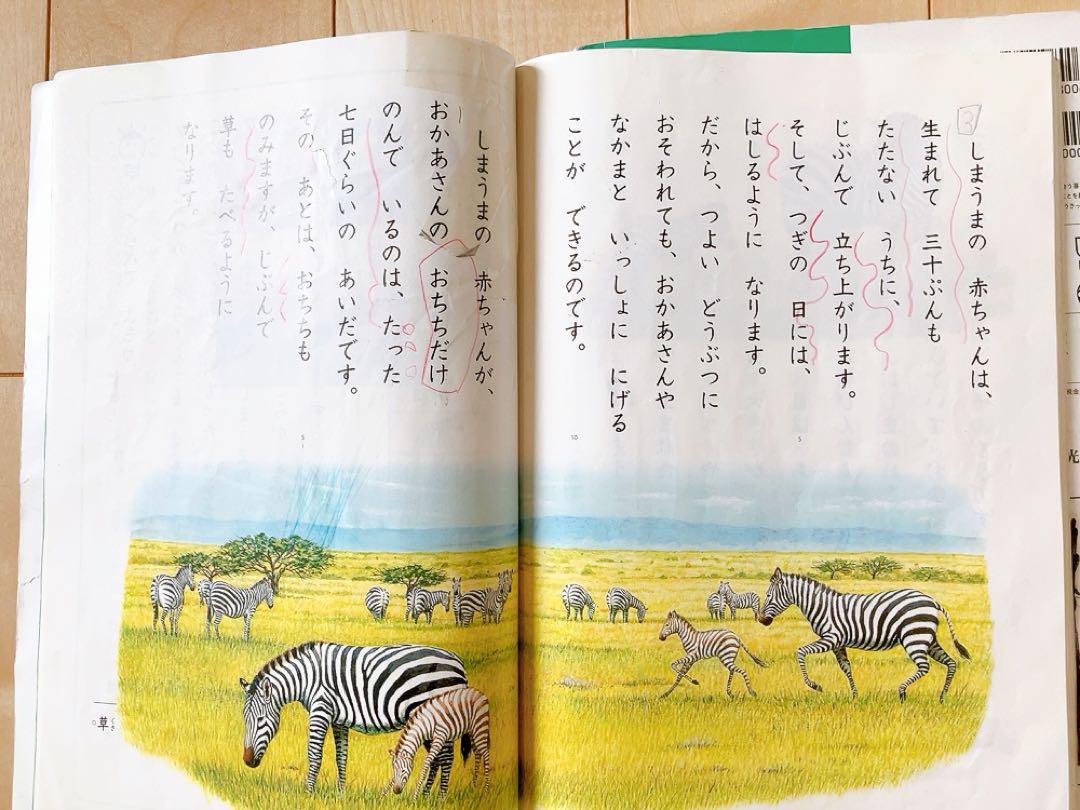 3
しまうまの 赤ちゃんは、
生まれて 三十ぷんも
たたない うちに、
じぶんで 立ち上がります。
そして、つぎの 日には、
はしるように なります。
だから、つよい どうぶつに
おそわれても、おかあさんや
なかまと いっしょに にげる
ことが できるのです。
5
10
しまうまの 赤ちゃんが、
おかあさんの おちちだけ
のんで いるのは、たった
七日ぐらいの あいだです。
その あとは、おちちも
のみますが、じぶんで
草も たべるように
なります。
5
○草
くさ
光